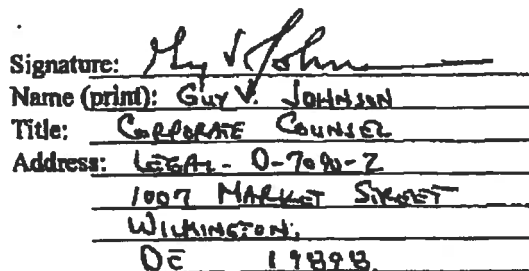 Signature: Guy V. Johnson
Name (print): GUY V. JOHNSON
Title: CORPORATE COUNSEL
Address: LEGAL - D-7090-2
1007 MARKET STREET
WILMINGTON,
DE 19898